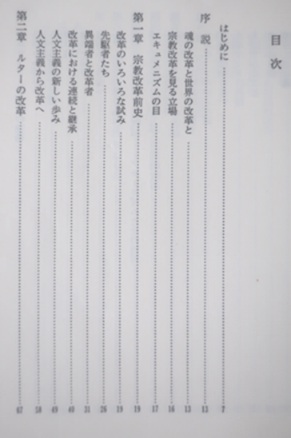 目次
はじめに 7
序説 11
魂の改革と世界の改革と 13
宗教改革を見る立場 16
エキュメニズムの目 17
第一章 宗教改革前史 19
改革のいろいろな試み 19
先駆者たち 26
異端者と改革者 31
改革における連続と継承 40
人文主義の新しい歩み 49
人文主義から改革へ 58
第二章 ルターの改革 67